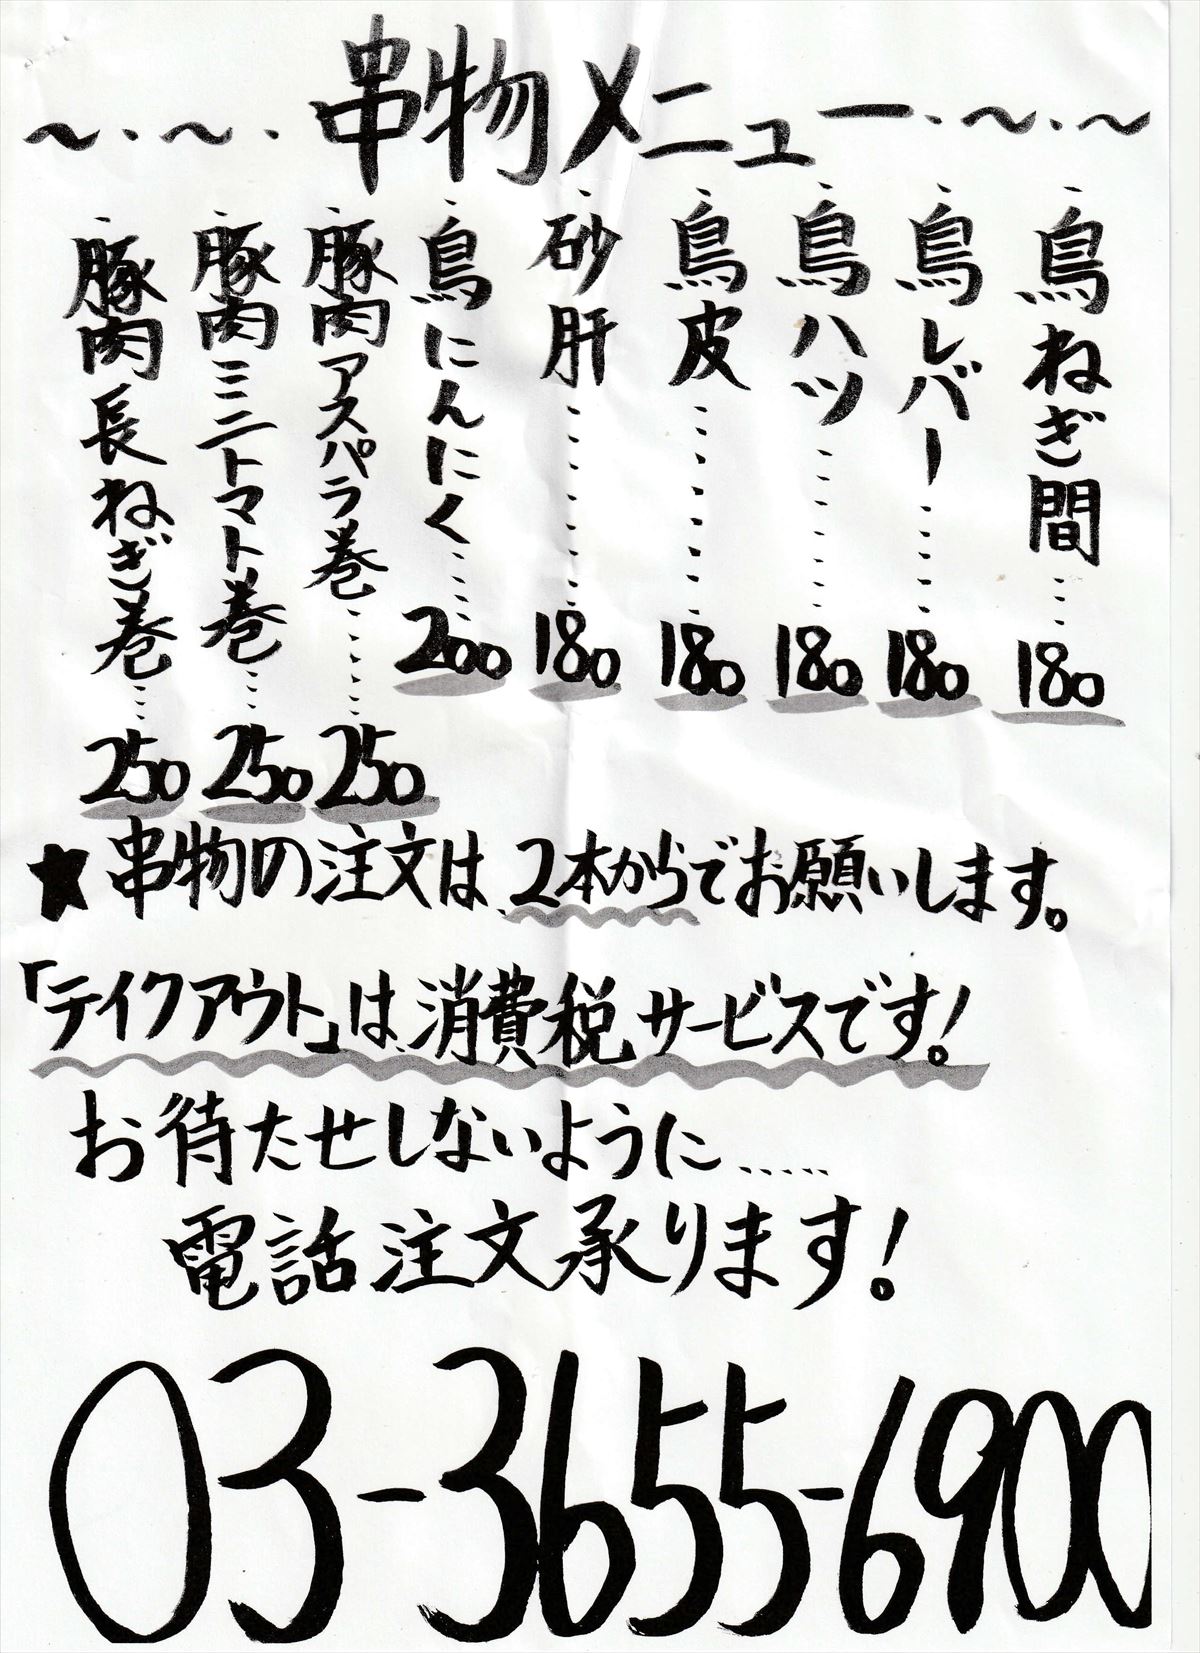 串物メニュー
鳥ねぎ間 180
鳥レバー 180
鳥ハツ 180
鳥皮 180
砂肝 180
鳥にんにく 200
豚肉アスパラ巻 250
豚肉ミニトマト巻 250
豚肉長ねぎ巻 250
★串物の注文は、2本からでお願いします。
「テイクアウト」は、消費税サービスです!
お待たせしないように……
電話注文承ります!
03-3655-6900